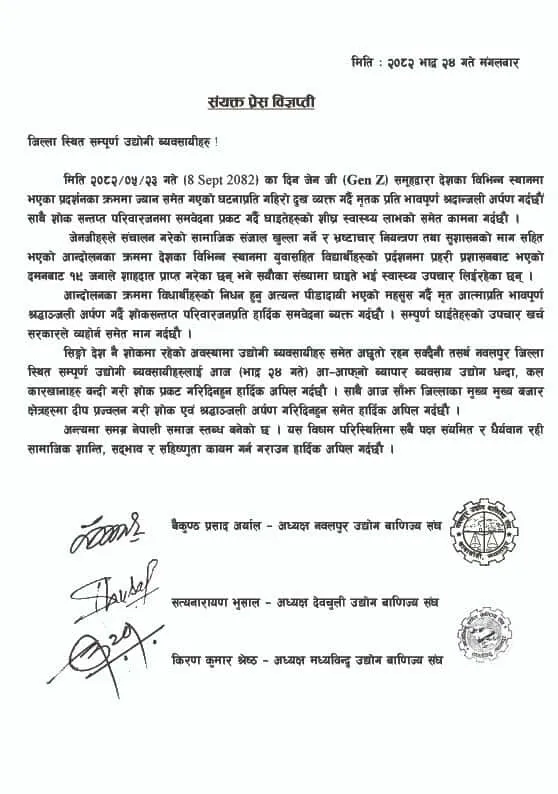 मिति : २०८२ भाद्र २४ गते मंगलबार
संयक्त प्रेस विज्ञप्ती
जिल्ला स्थित सम्पूर्ण उद्योगी ब्यवसायीहरु !
मिति २०८२/०५/२३ गते (8 Sept 2082) का दिन जेन जी (Gen Z) समूहद्वारा देशका विभिन्न स्थानमा
भएका प्रदर्शनका क्रममा ज्यान समेत गएको घटनाप्रति गहिरो दुख ब्यक्त गर्दै मृतक प्रति भावपूर्ण श्रदान्जली अर्पण गर्दछौं
साथै शोक सन्तप्त परिवारजनमा समवेदना प्रकट गर्दै घाइतेहरुको शीघ्र स्वास्थ्य लाभको समेत कामना गर्दछौ ।
जेनजीहरुले संचालन गरेको सामाजिक संजाल खुल्ला गर्ने र भ्रष्टाचार नियन्त्रण तथा सुशासनको माग सहित
भएको आन्दोलनका क्रममा देशका विभिन्न स्थानमा युवासहित विद्यार्थीहरुको प्रर्दशनमा प्रहरी प्रशासनबाट भएको
दमनबाट १९ जनाले शाहदात प्राप्त गरेका छन् भने सयौका संख्यामा घाइते भई स्वास्थ्य उपचार लिईरहेका छन् ।
आन्दोलनका क्रममा विधार्थीहरुको निधन हुनु अत्यन्त पीडादायी भएको महसुस गर्दै मृत आत्माप्रति भावपूर्ण
श्रद्धाञ्जली अर्पण गर्दै शोकसन्तप्त परिवारजनप्रति हार्दिक समवेदना ब्यक्त गर्दछौ । सम्पुर्ण घाईतेहरुको उपचार खर्च
सरकारले व्यहोर्न समेत माग गर्दछौ ।
सिङ्गो देश नै शोकमा रहेको अवस्थामा उद्योगी ब्यवसायीहरु समेत अछुतो रहन सक्दैनौ तसर्थ नवलपुर जिल्ला
स्थित सम्पूर्ण उद्योगी ब्यवसायीहरुलाई आज (भाद्र २४ गते) आ-आफ्नो ब्यापार ब्यवसाय उद्योग धन्दा, कल
कारखानाहरु बन्दी गरी शोक प्रकट गरिदिनुहुन हार्दिक अपिल गर्दछौ । साथै आज साँझ जिल्लाका मुख्य मुख्य बजार
क्षेत्रहरुमा दीप प्रज्वलन गरी शोक एवं श्रद्धाञ्जली अर्पण गरिदिनहुन समेत हार्दिक अपिल गर्दछौ ।
अन्त्यमा समग्र नेपाली समाज स्तब्ध बनेको छ । यस विषम परिस्थितिमा सबै पक्ष संयमित र धैर्यवान रही
सामाजिक शान्ति, सद्भाव र सहिष्णुता कायम गर्न गराउन हार्दिक अपिल गर्दछौ ।
बैकुण्ठ प्रसाद अर्याल - अध्यक्ष नवलपुर उद्योग बाणिज्य संघ
सत्यनारायण भुसाल - अध्यक्ष देवचुली उद्योग बाणिज्य संघ
किरण कुमार श्रेष्ठ - अध्यक्ष मध्यविन्दु उद्योग बाणिज्य संघ